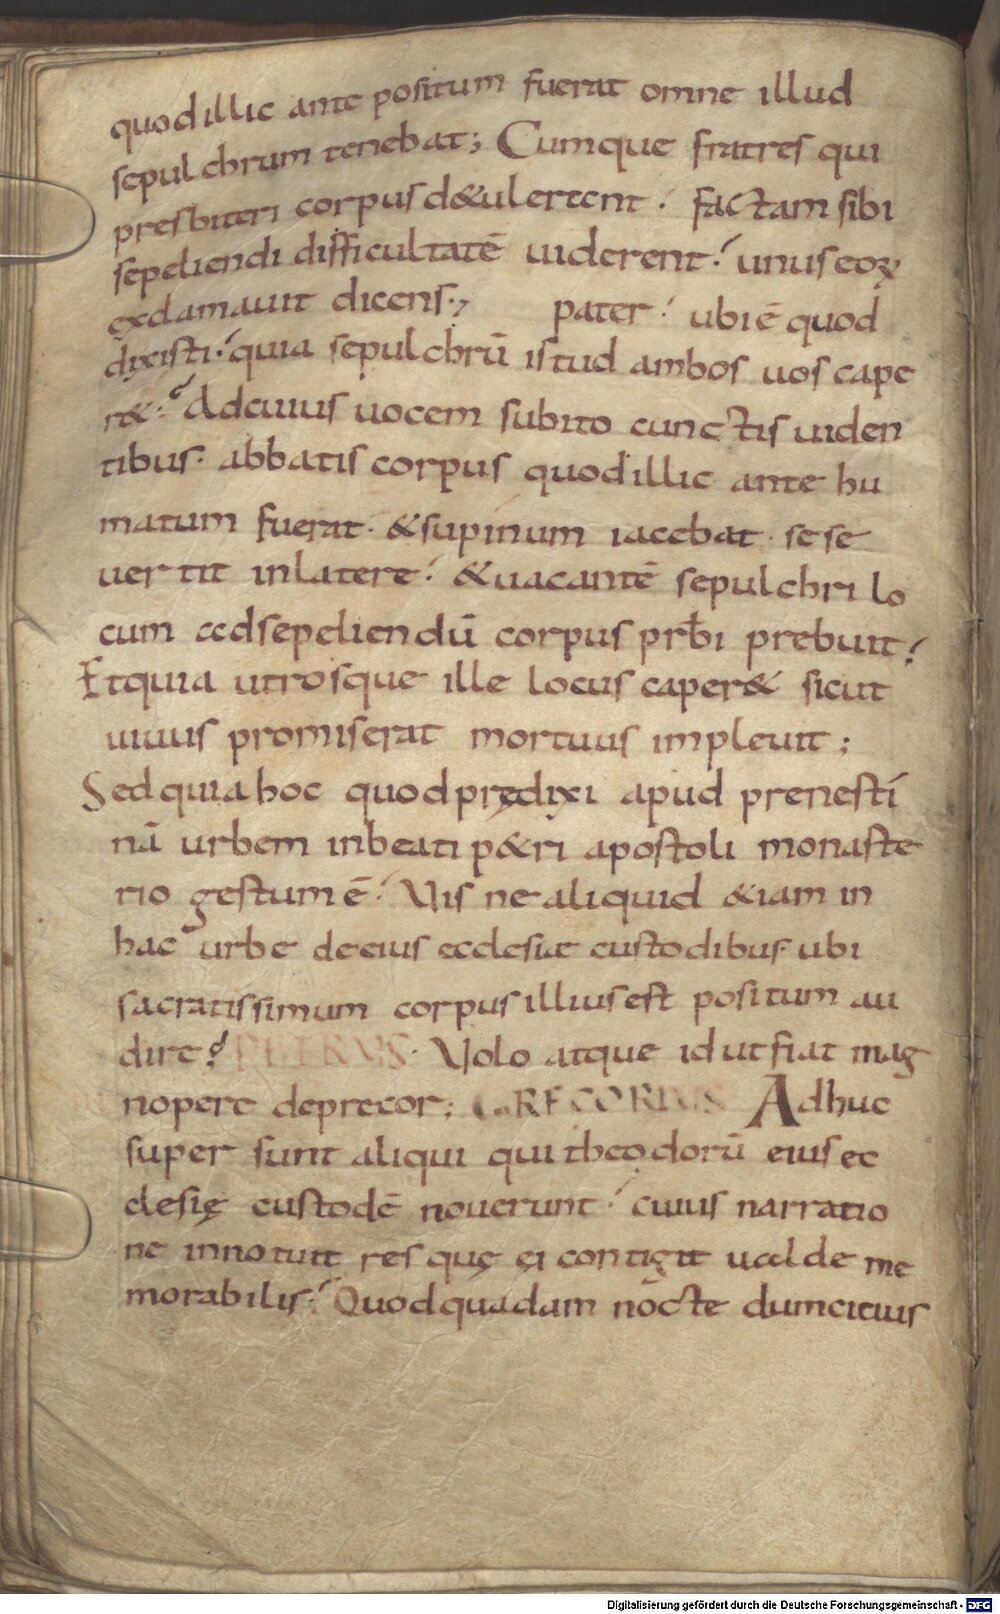 quod illic ante positum fuerat omne illud
sepulchrum tenebat; Cumque fratres qui
presbiteri corpus d&ulerent. factam sibi
sepeliendi difficultatē uiderent. unus eoꝝ
exclamauit dicens.; pater. ubi ē quod
dixisti. quia sepulchrū istud ambos uos cape
r&? Ad cuius uocem subito cunctis uiden
tibus. abbatis corpus quod illic ante hu
matum fuerat. & supinum iacebat. sese
uertit in latere. & uacantē sepulchri lo
cum ad sepeliendū corpus prb̄i prebuit.
Et quia utrosque ille locus caper& sicut
uiuus promiserat mortuus impleuit;
Sed quia hoc quod prędixi apud prenesti
nā urbem in beati p&ri apostoli monaste
rio gestum ē. Vis ne aliquid &iam in
hac urbe de eius ecclesiae custodibus. ubi
sacratissimum corpus illius est positum au
dire? PETRUS. Volo atque id ut fiat mag
nopere deprecor; GREGORIUS Adhuc
super sunt aliqui qui theodorū eius ec
clesię custodē nouerunt. cuius narratio
ne innotuit res quę ei contigit ualde me
morabilis. Quod quadam nocte dum citius
Digitalisierung gefördert durch die Deutsche Forschungsgemeinschaft - DFG